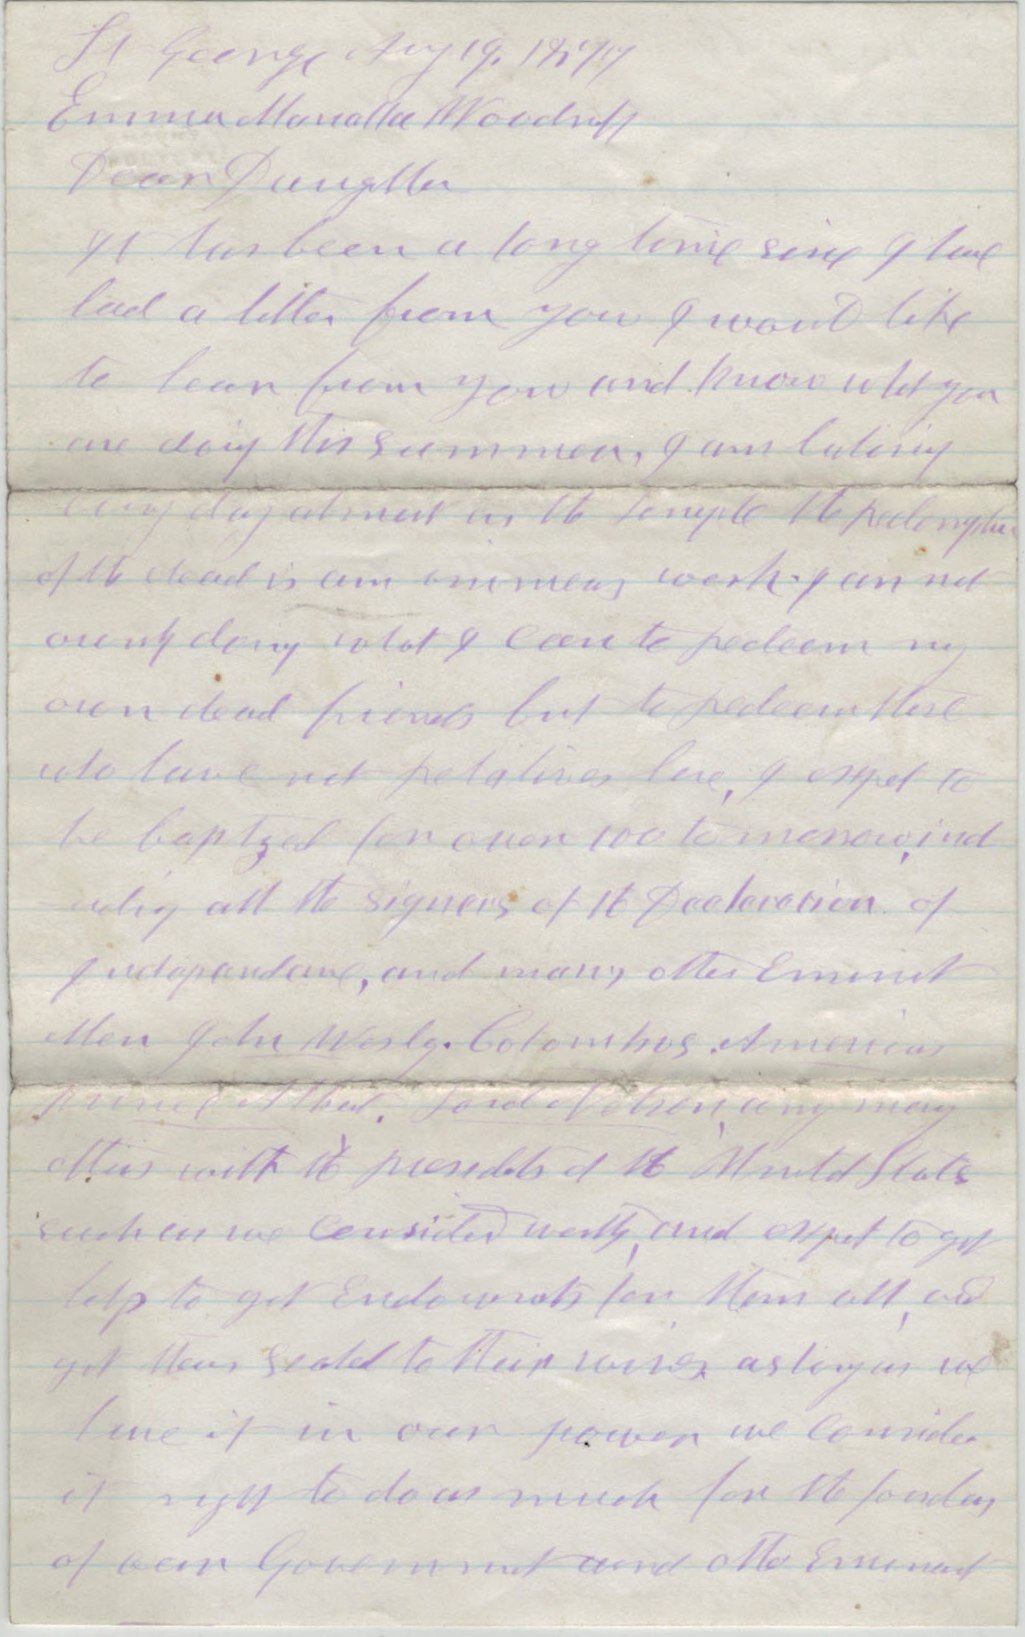 St George Aug 19, 1877
Emma Manella Woodruff
Dear Daughter
It has been a long time since I have
had a letter from you I would like
to hear from you and know what you
are doing this summer, I am laboring
every day almost in the Temple the redemption
of the dead is an immens work. I am not
ownly doing what I can to redeem my
own dead friends but to redeem those
who have not relatives here, I expet to
be baptzed for over 100 to morrow, incl
uding all the signers of the Declaration of
Independance, and many other Eminent
Men John Wesly. Columbus. Americus
Prince Albert. Lord Nelson, any many
others with the presidets of the United States
such as we consider worthy, and expet to get
help to get Endowmets for them all, and
get them sealed to their wives, as long as we
have it in our power we consider
it right to do as much for the founders
of our Governmet and other Eminent